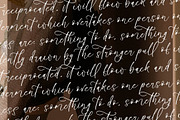 reciprocated. it will flow back and s
itement which overtakes one person o
ss are: something to do, something t
lently drawn by the stronger pull of
reciprocated. it will flow back and s
itement which overtakes one person o
ess are: something to do, something
lently drawn by the stronger pull of